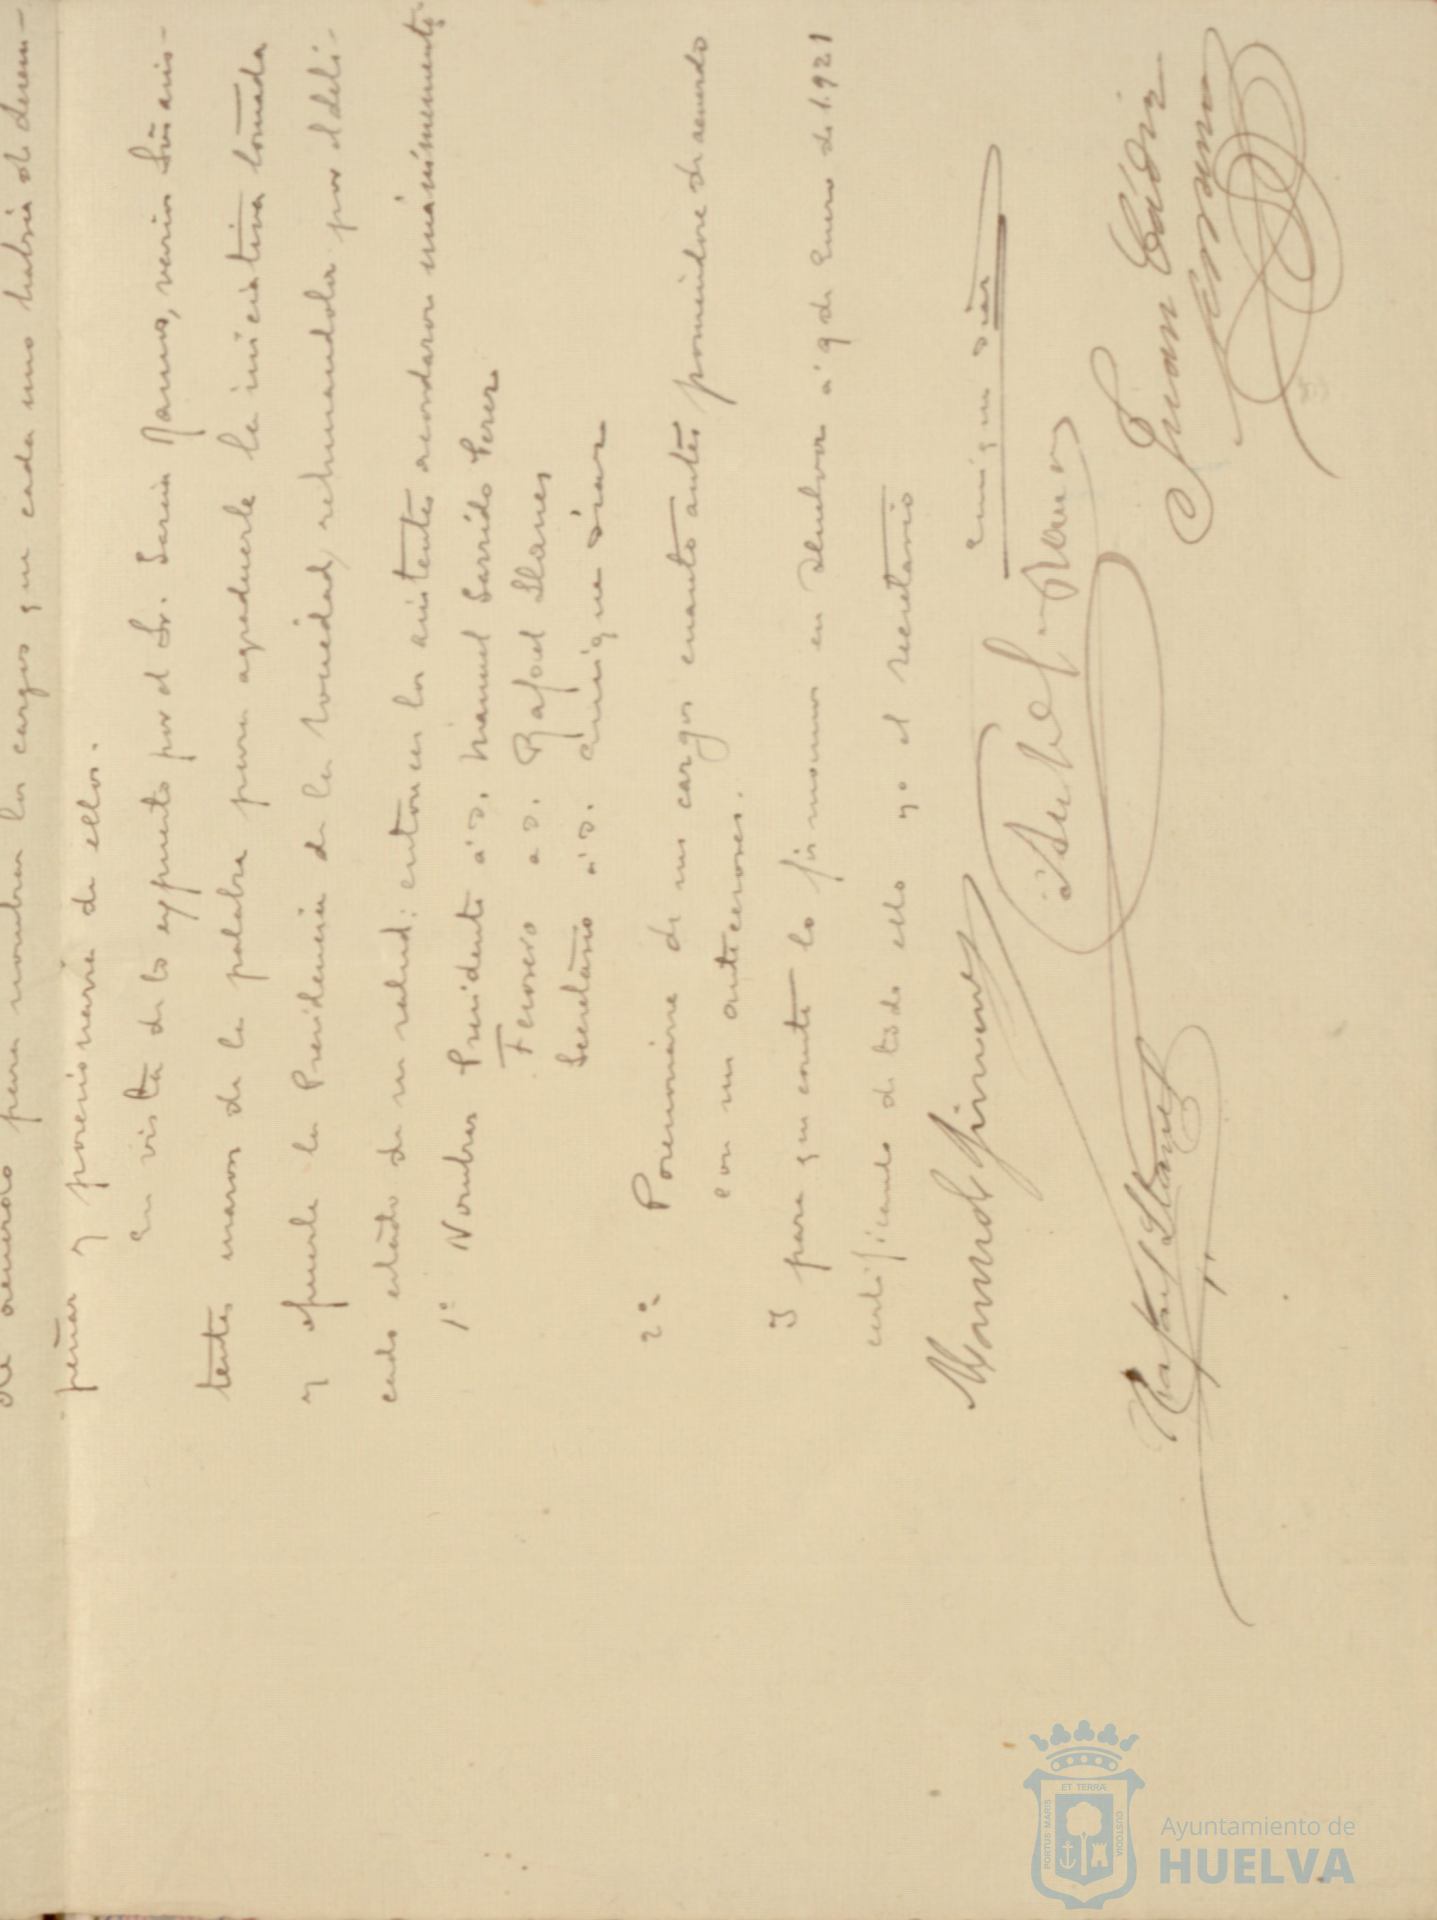 de acuerdo para nombrar los cargos que cada uno habria de desem-
peñar y posesionarse de ellos.
En vista de lo expuesto por el Sr. Garcia Ramos, varios Sres asis-
tentes usaron de la palabra para agradecerle la iniciativa tomada
y ofrecerle la Presidencia de la Sociedad, rehusandola por el deli-
cado estado de su salud: entonces los asistentes acordaron unánimemente
1º Nombrar Presidente á D. Manuel Garrido Perez
Tesorero a D. Rafael Llanes
Secretario á D. Enrique Diaz
2º Posesionarse de sus cargos cuanto antes poniendose de acuerdo
con sus antecesores.
Y para que conste lo firmamos en Huelva á 9 de Enero de 1.921
certificando de todo ello yo el secretario
Enrique Diaz
Manuel Jimenez
Juan Cádiz
Rafael Llanes
PORTUS MARIS ET TERRÆ CUSTODIA
Ayuntamiento de
HUELVA